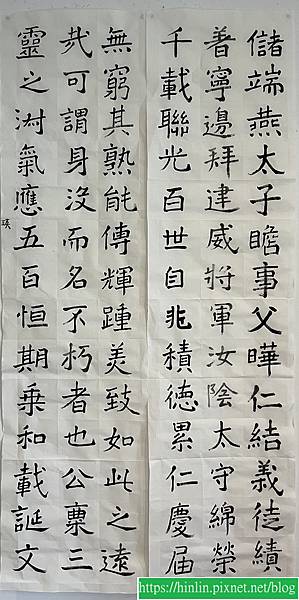 儲端燕太子瞻事父曄仁結義徒績
普寧邊拜建威將軍汝陰太守綿榮
千載聯光百世自非積德累仁慶屆
無窮其熟能傳輝踵美致如此之遠
哉可謂身沒而名不朽者也公稟三
靈之淑氣應五百恒期乘和載誕文
https://hinlin.pixnet.net/blog